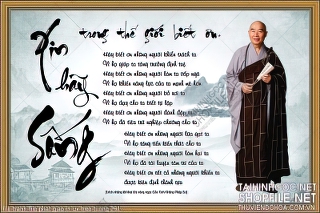 Xin hãy
Sống
trong thế giới biết ơn.
Hãy biết ơn những người khiển trách ta
Vì họ giúp ta tăng trưởng định tuệ
Hãy biết ơn những người làm ta vấp ngã
Vì họ khiến năng lực của ta mạnh mẽ hơn
Hãy biết ơn những người bỏ rơi ta
Vì họ dạy cho ta biết tự lập
Hãy biết ơn những người đánh đập ta
Vì họ đã tiêu trừ nghiệp chướng cho ta
Hãy biết ơn những người lừa gạt ta
Vì họ tăng tiến kiến thức cho ta
Hãy biết ơn những người làm hại ta
Vì họ đã tôi luyện tâm trí của ta
Hãy biết ơn tất cả những người khiến ta
được kiên định thành tựu
TAIHINHGOC.NET
SHOPFILE.NET
THUVIENDOHOA.COM.VN